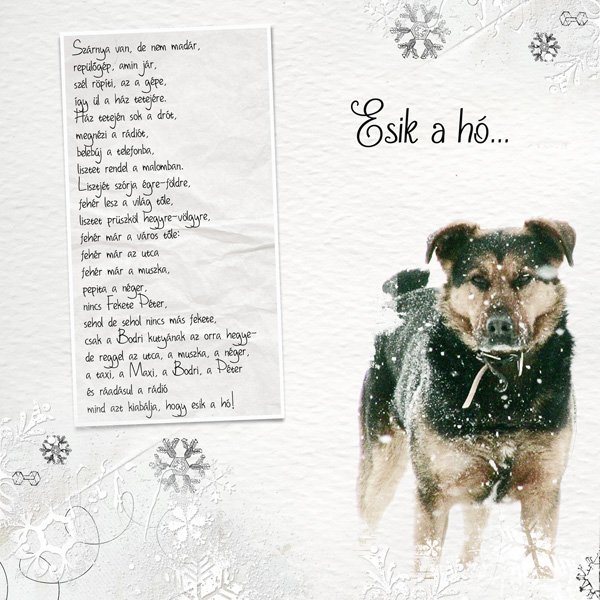 Szárnya van, de nem madár,
repülőgép, amin jár,
szél röpíti, az a gépe,
így ül a ház tetejére.
Ház tetején sok a drót,
megnézi a rádiót,
belebúj a telefonba,
lisztet rendel a malomban.
Lisztjét szórja égre-földre,
fehér lesz a világ tőle,
lisztet prüszköl hegyre-völgyre,
fehér már a város tőle:
fehér már az utca
fehér már a muszka,
pepita a néger,
nincs Fekete Péter,
sehol de sehol nincs más fekete,
csak a Bodri kutyának az orra hegye-
de reggel az utca, a muszka, a néger,
a taxi, a Maxi, a Bodri, a Péter
és ráadásul a rádió
mind azt kiabálja, hogy esik a hó!
Esik a hó...